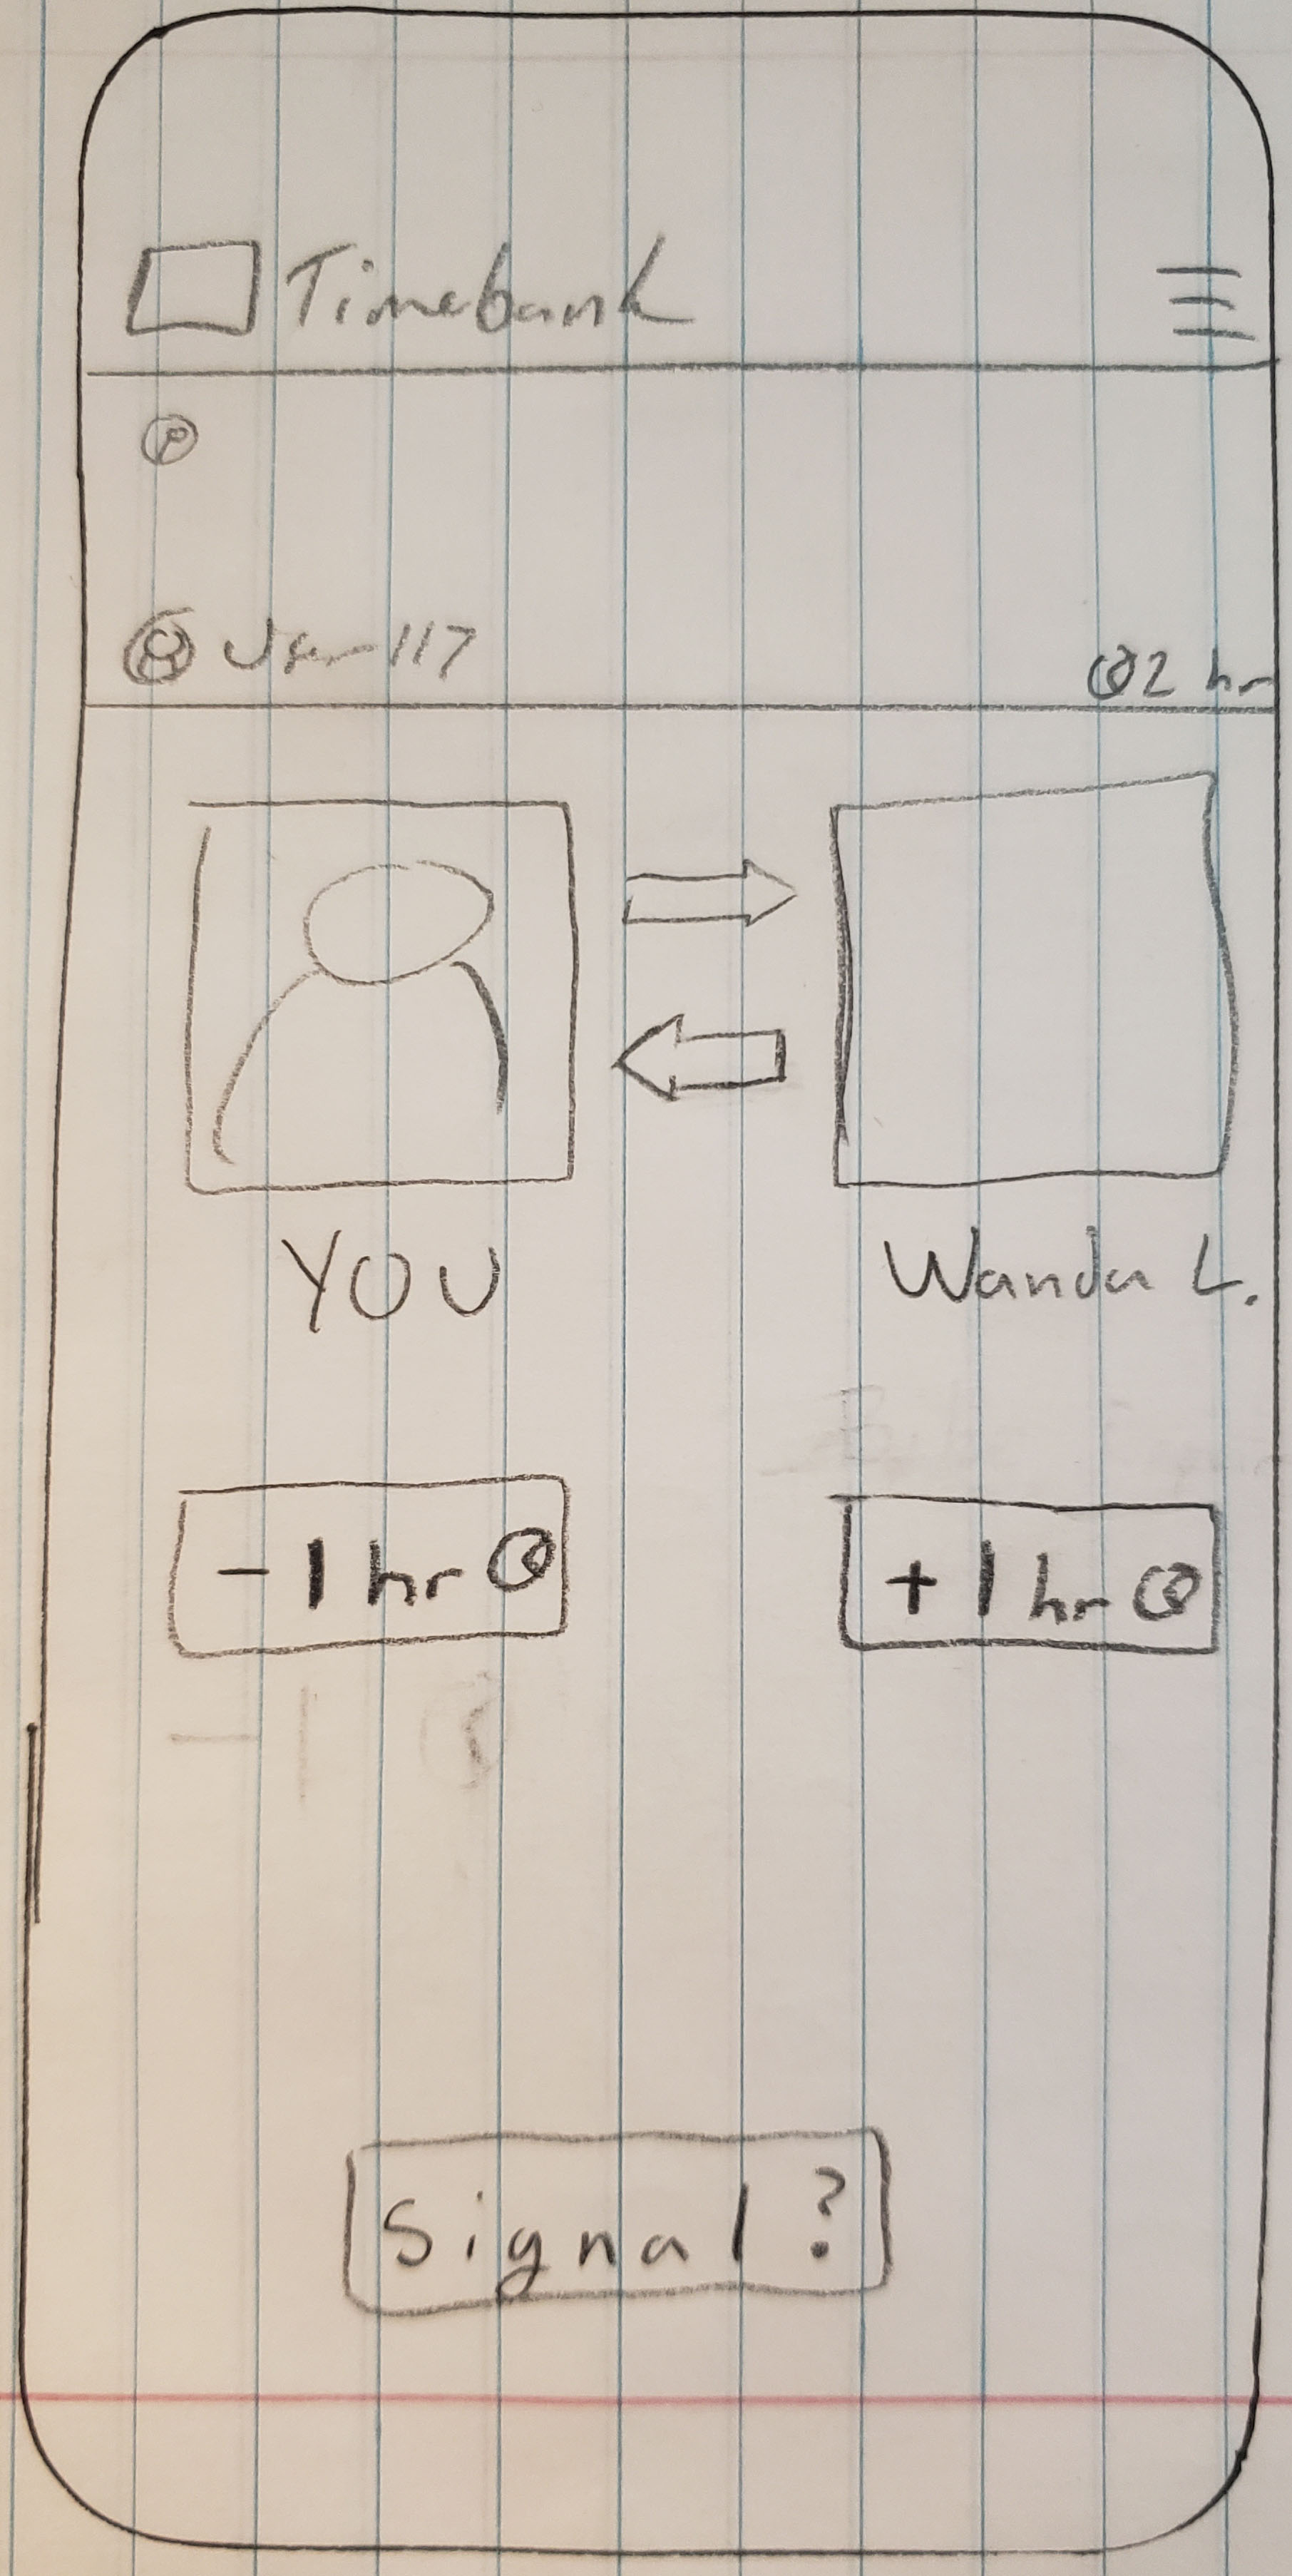 Timebank
User 117
2 hr
YOU
Wanda L.
- 1 hr
+ 1 hr
Signal ?